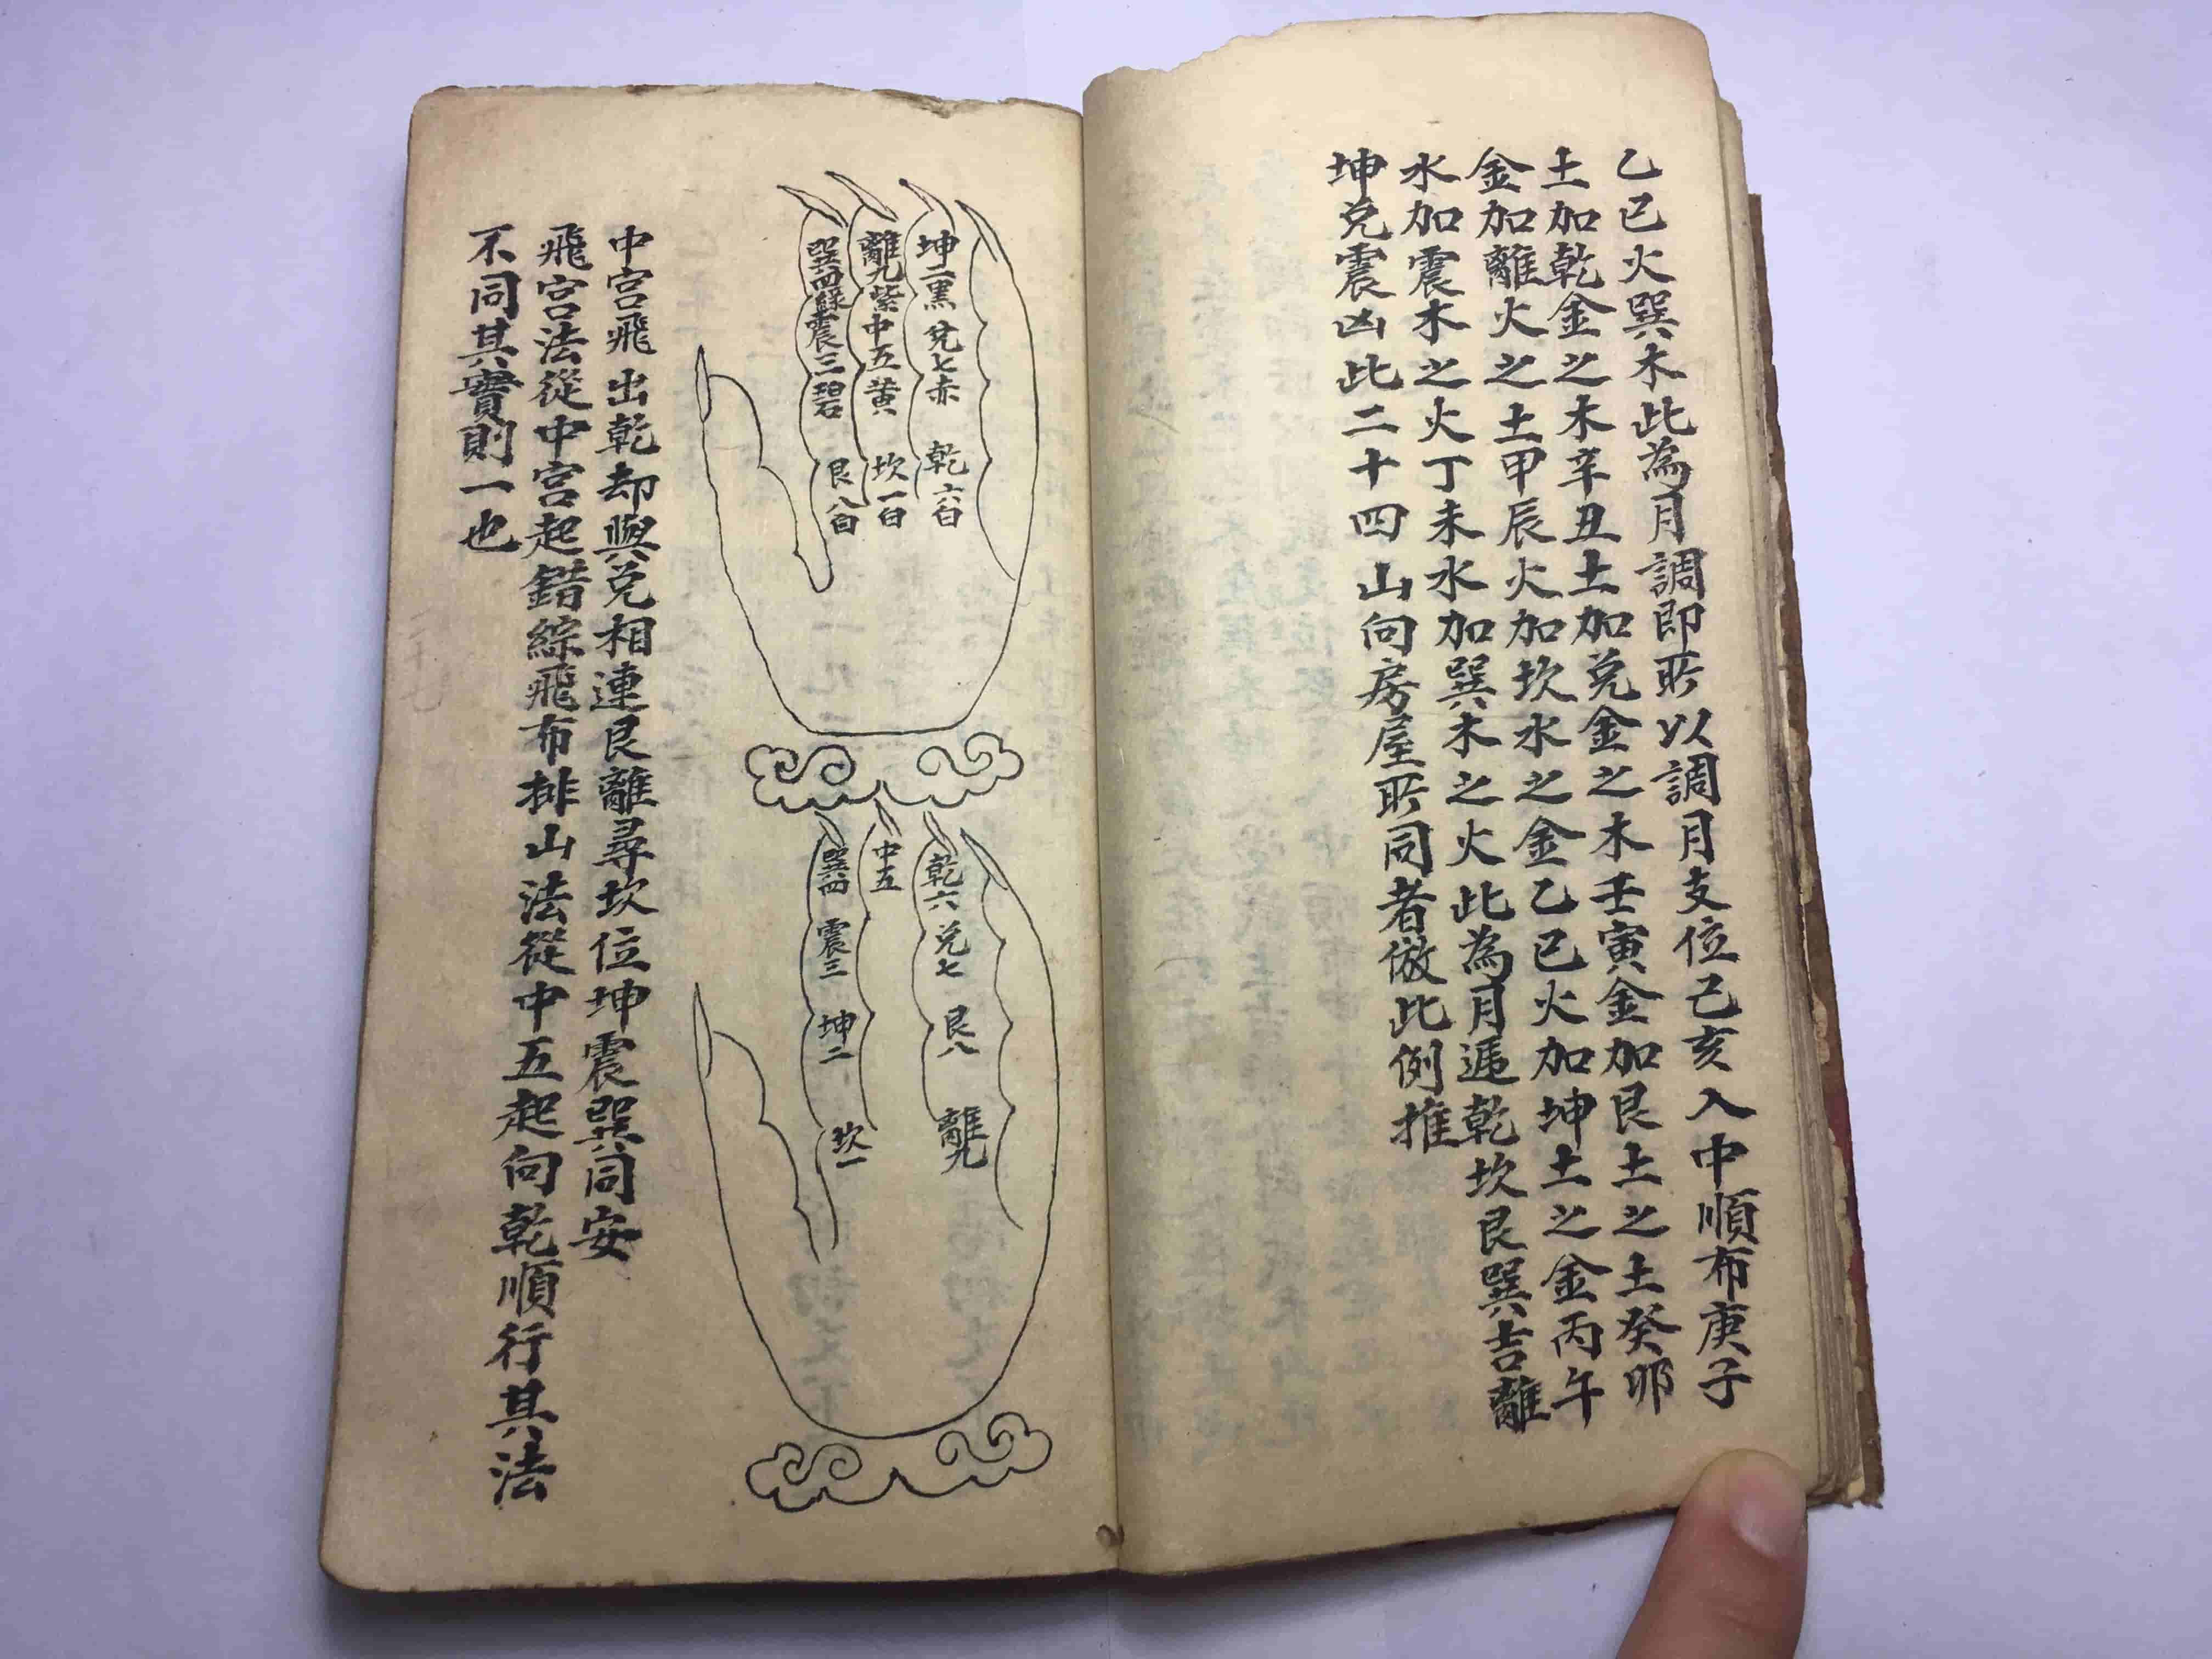 乙巳火巽木此為月調即所以調月支位己亥入中順布庚子
土加乾金之木辛丑土加兑金之木壬寅金加艮土之土癸卯
金加離火之土甲辰火加坎水之金乙巳火加坤土之金丙午
水加震木之火丁未水加巽木之火此為月遁乾坎艮巽吉離
坤兑震凶此二十四山向房屋所同者倣此例推
坤二黑 兑七赤 乾六白
離九紫 中五黄 坎一白
巽四綠 震三碧 艮八白
乾六 兑七 艮八 離九
中五
巽四 震三 坤二 坎一
中宮飛出乾却與兑相連艮離尋坎位坤震巽同安
飛宮法從中宮起錯綜飛布排山法從中五起向乾順行其法
不同其實則一也